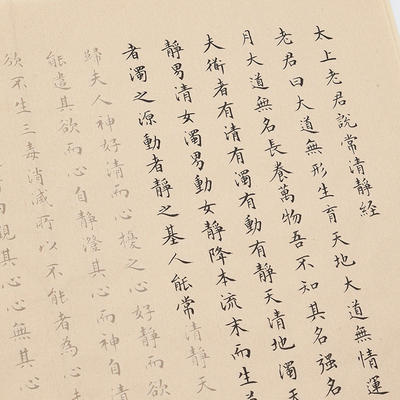 太上老君說常清靜經
老君曰大道無形生育天地大道無情運
月大道無名長養萬物吾不知其名強名
夫衜者有清有濁有動有靜天清地濁天
靜男清女濁男動女靜降本流末而生
者濁之源動者靜之基人能常清靜天
歸夫人神好清而心擾之心好靜而
能遣其欲而心自靜澄其心而神自清
欲不生三毒消滅所以不能者為心未
觀其心心無其心